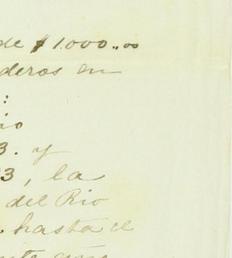 de $1.000..oo
deros en
:
io
3. y
3, la
del Rio
hasta el